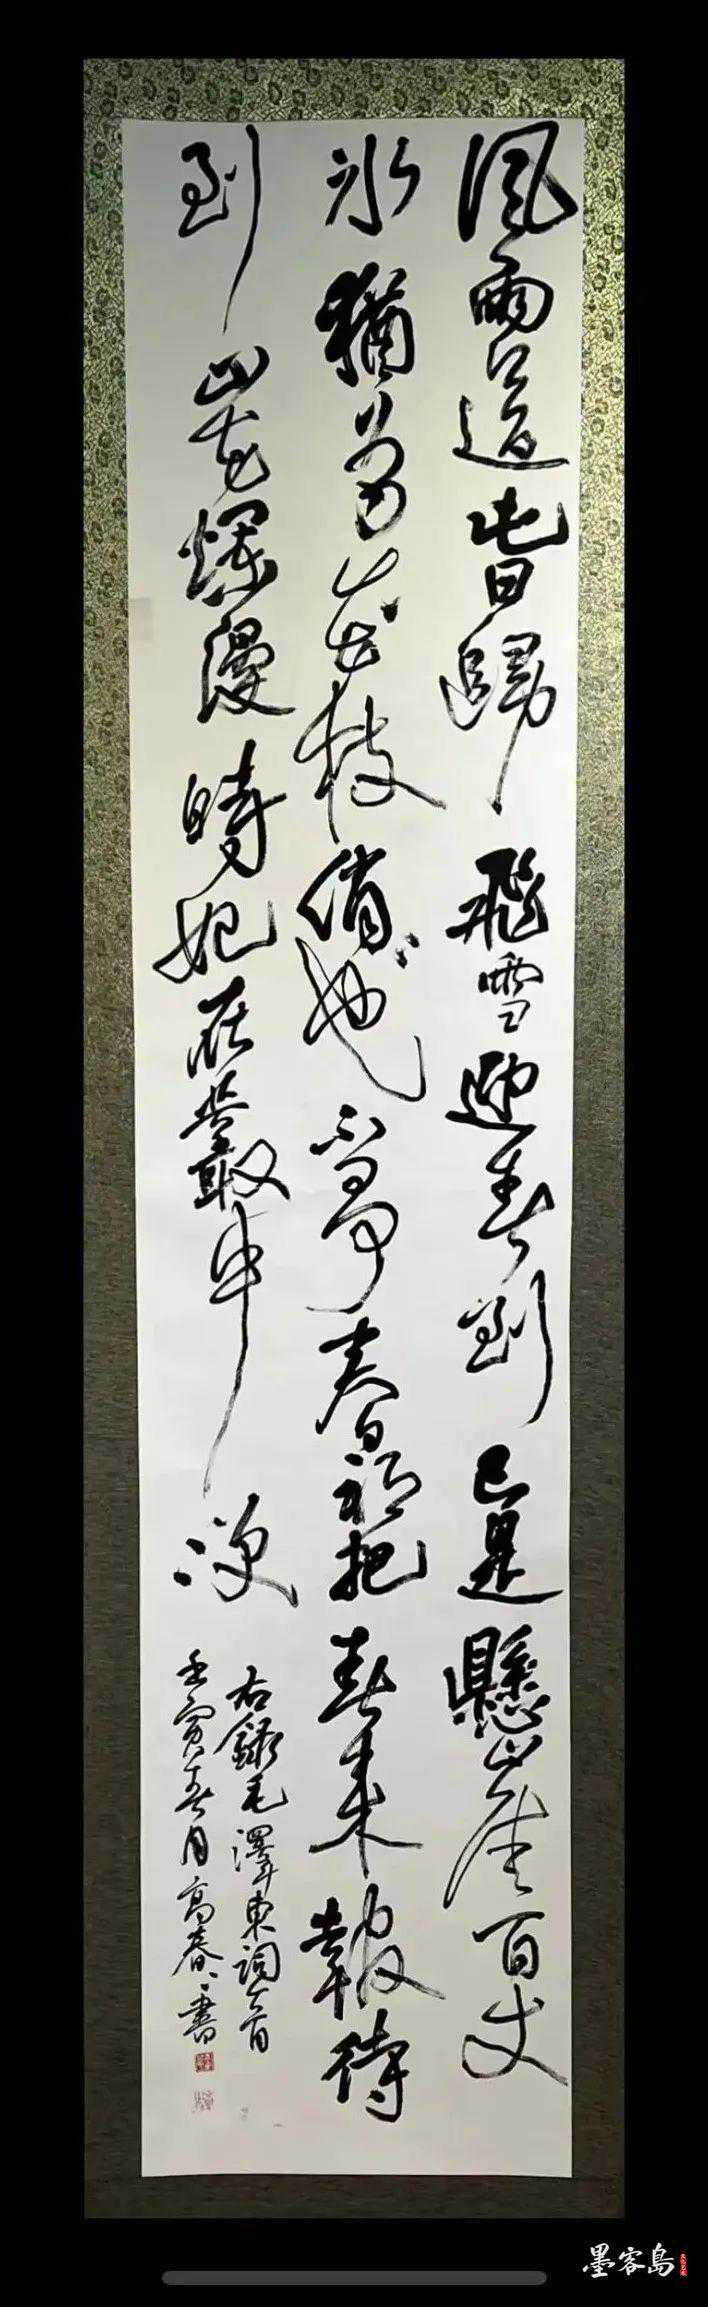 風雨送春歸飛雪迎春到已是懸崖百丈
冰猶有花枝俏〻也不爭春祗把春來報待
到山花爛漫時她在叢中笑
右錄毛澤東詞一首
壬寅春月高春〻書
墨客島